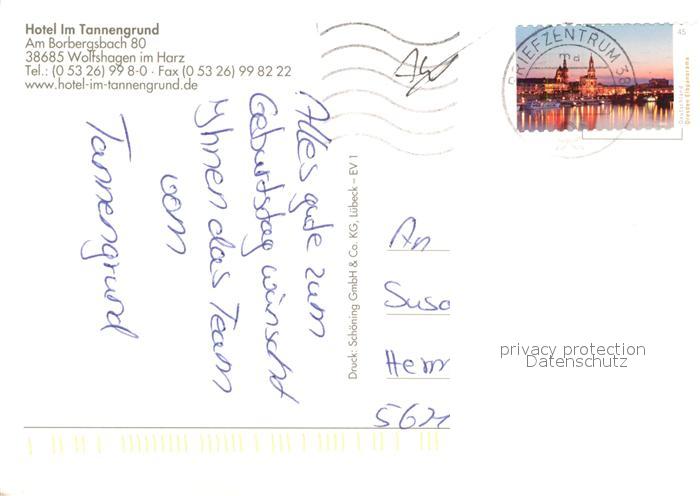 Hotel Im Tannengrund
Am Borbergsbach 80
38685 Wolfshagen im Harz
Tel.: (0 53 26) 99 8-0 · Fax (0 53 26) 99 82 22
www.hotel-im-tannengrund.de
Alles gute zum
Geburtstag wünscht
Ihnen das Team
vom
Tannengrund
Druck: Schöning GmbH & Co. KG, Lübeck – EV 1
BRIEFZENTRUM 38
md
45
Deutschland
Dresden Elbpanorama
An
Susa
Herr
5621
privacy protection
Datenschutz